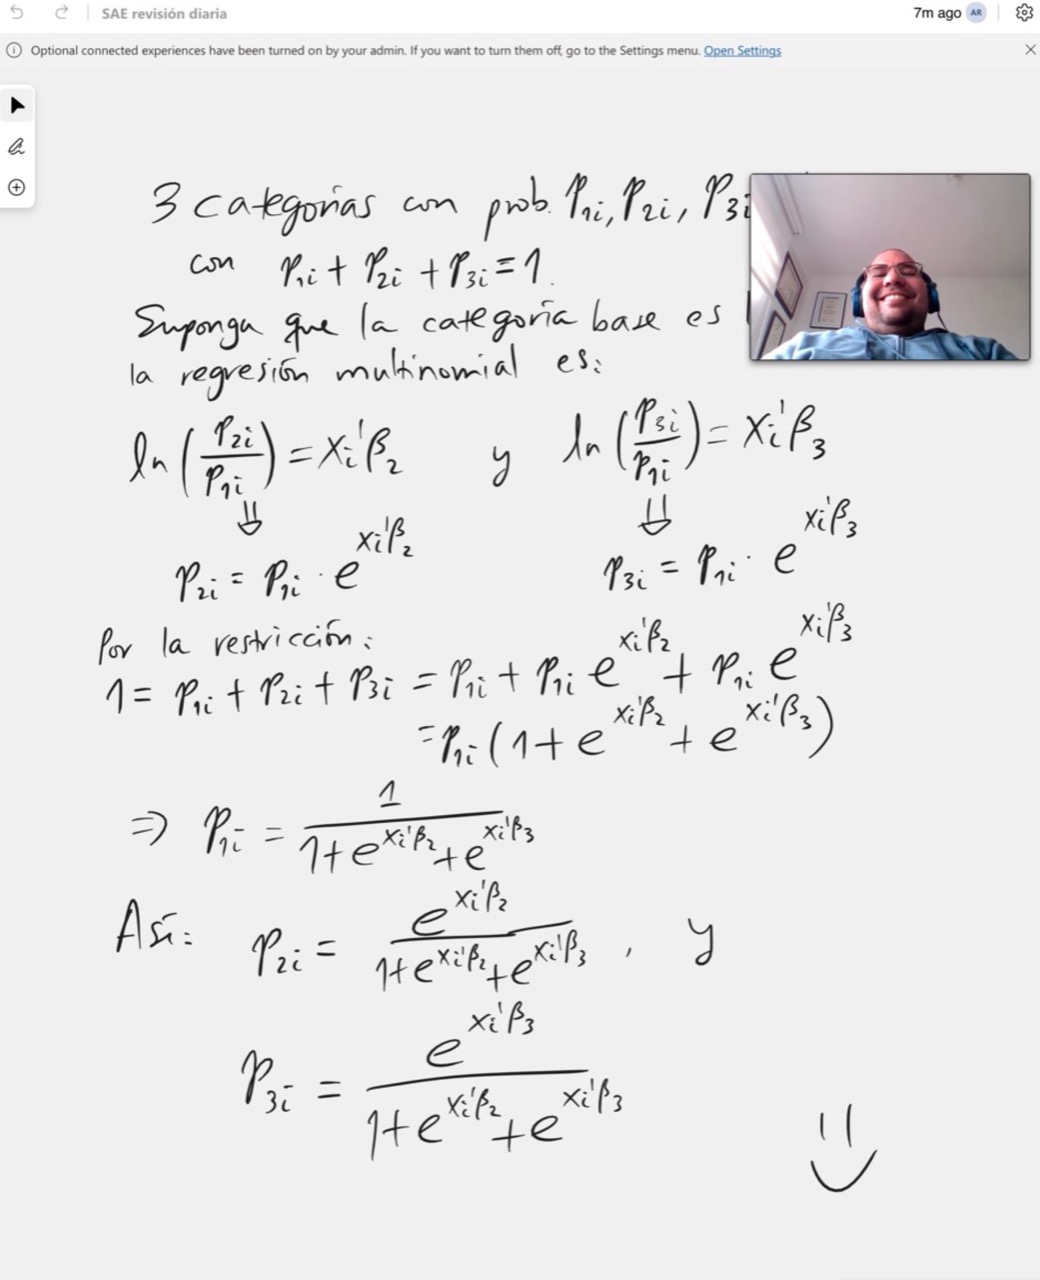 SAE revisión diaria
7m ago AR
Optional connected experiences have been turned on by your admin. If you want to turn them off, go to the Settings menu. Open Settings
3 categorías con prob. p₁ᵢ, p₂ᵢ, p₃ᵢ
con p₁ᵢ + p₂ᵢ + p₃ᵢ = 1.
Suponga que la categoría base es
la regresión multinomial es:
ln(p₂ᵢ/p₁ᵢ) = xᵢ'β₂ y ln(p₃ᵢ/p₁ᵢ) = xᵢ'β₃
⇓ ⇓
p₂ᵢ = p₁ᵢ · e^(xᵢ'β₂) p₃ᵢ = p₁ᵢ · e^(xᵢ'β₃)
Por la restricción:
1 = p₁ᵢ + p₂ᵢ + p₃ᵢ = p₁ᵢ + p₁ᵢ e^(xᵢ'β₂) + p₁ᵢ e^(xᵢ'β₃)
= p₁ᵢ (1 + e^(xᵢ'β₂) + e^(xᵢ'β₃))
⇒ p₁ᵢ = 1/(1 + e^(xᵢ'β₂) + e^(xᵢ'β₃))
Así: p₂ᵢ = e^(xᵢ'β₂)/(1 + e^(xᵢ'β₂) + e^(xᵢ'β₃)), y
p₃ᵢ = e^(xᵢ'β₃)/(1 + e^(xᵢ'β₂) + e^(xᵢ'β₃))